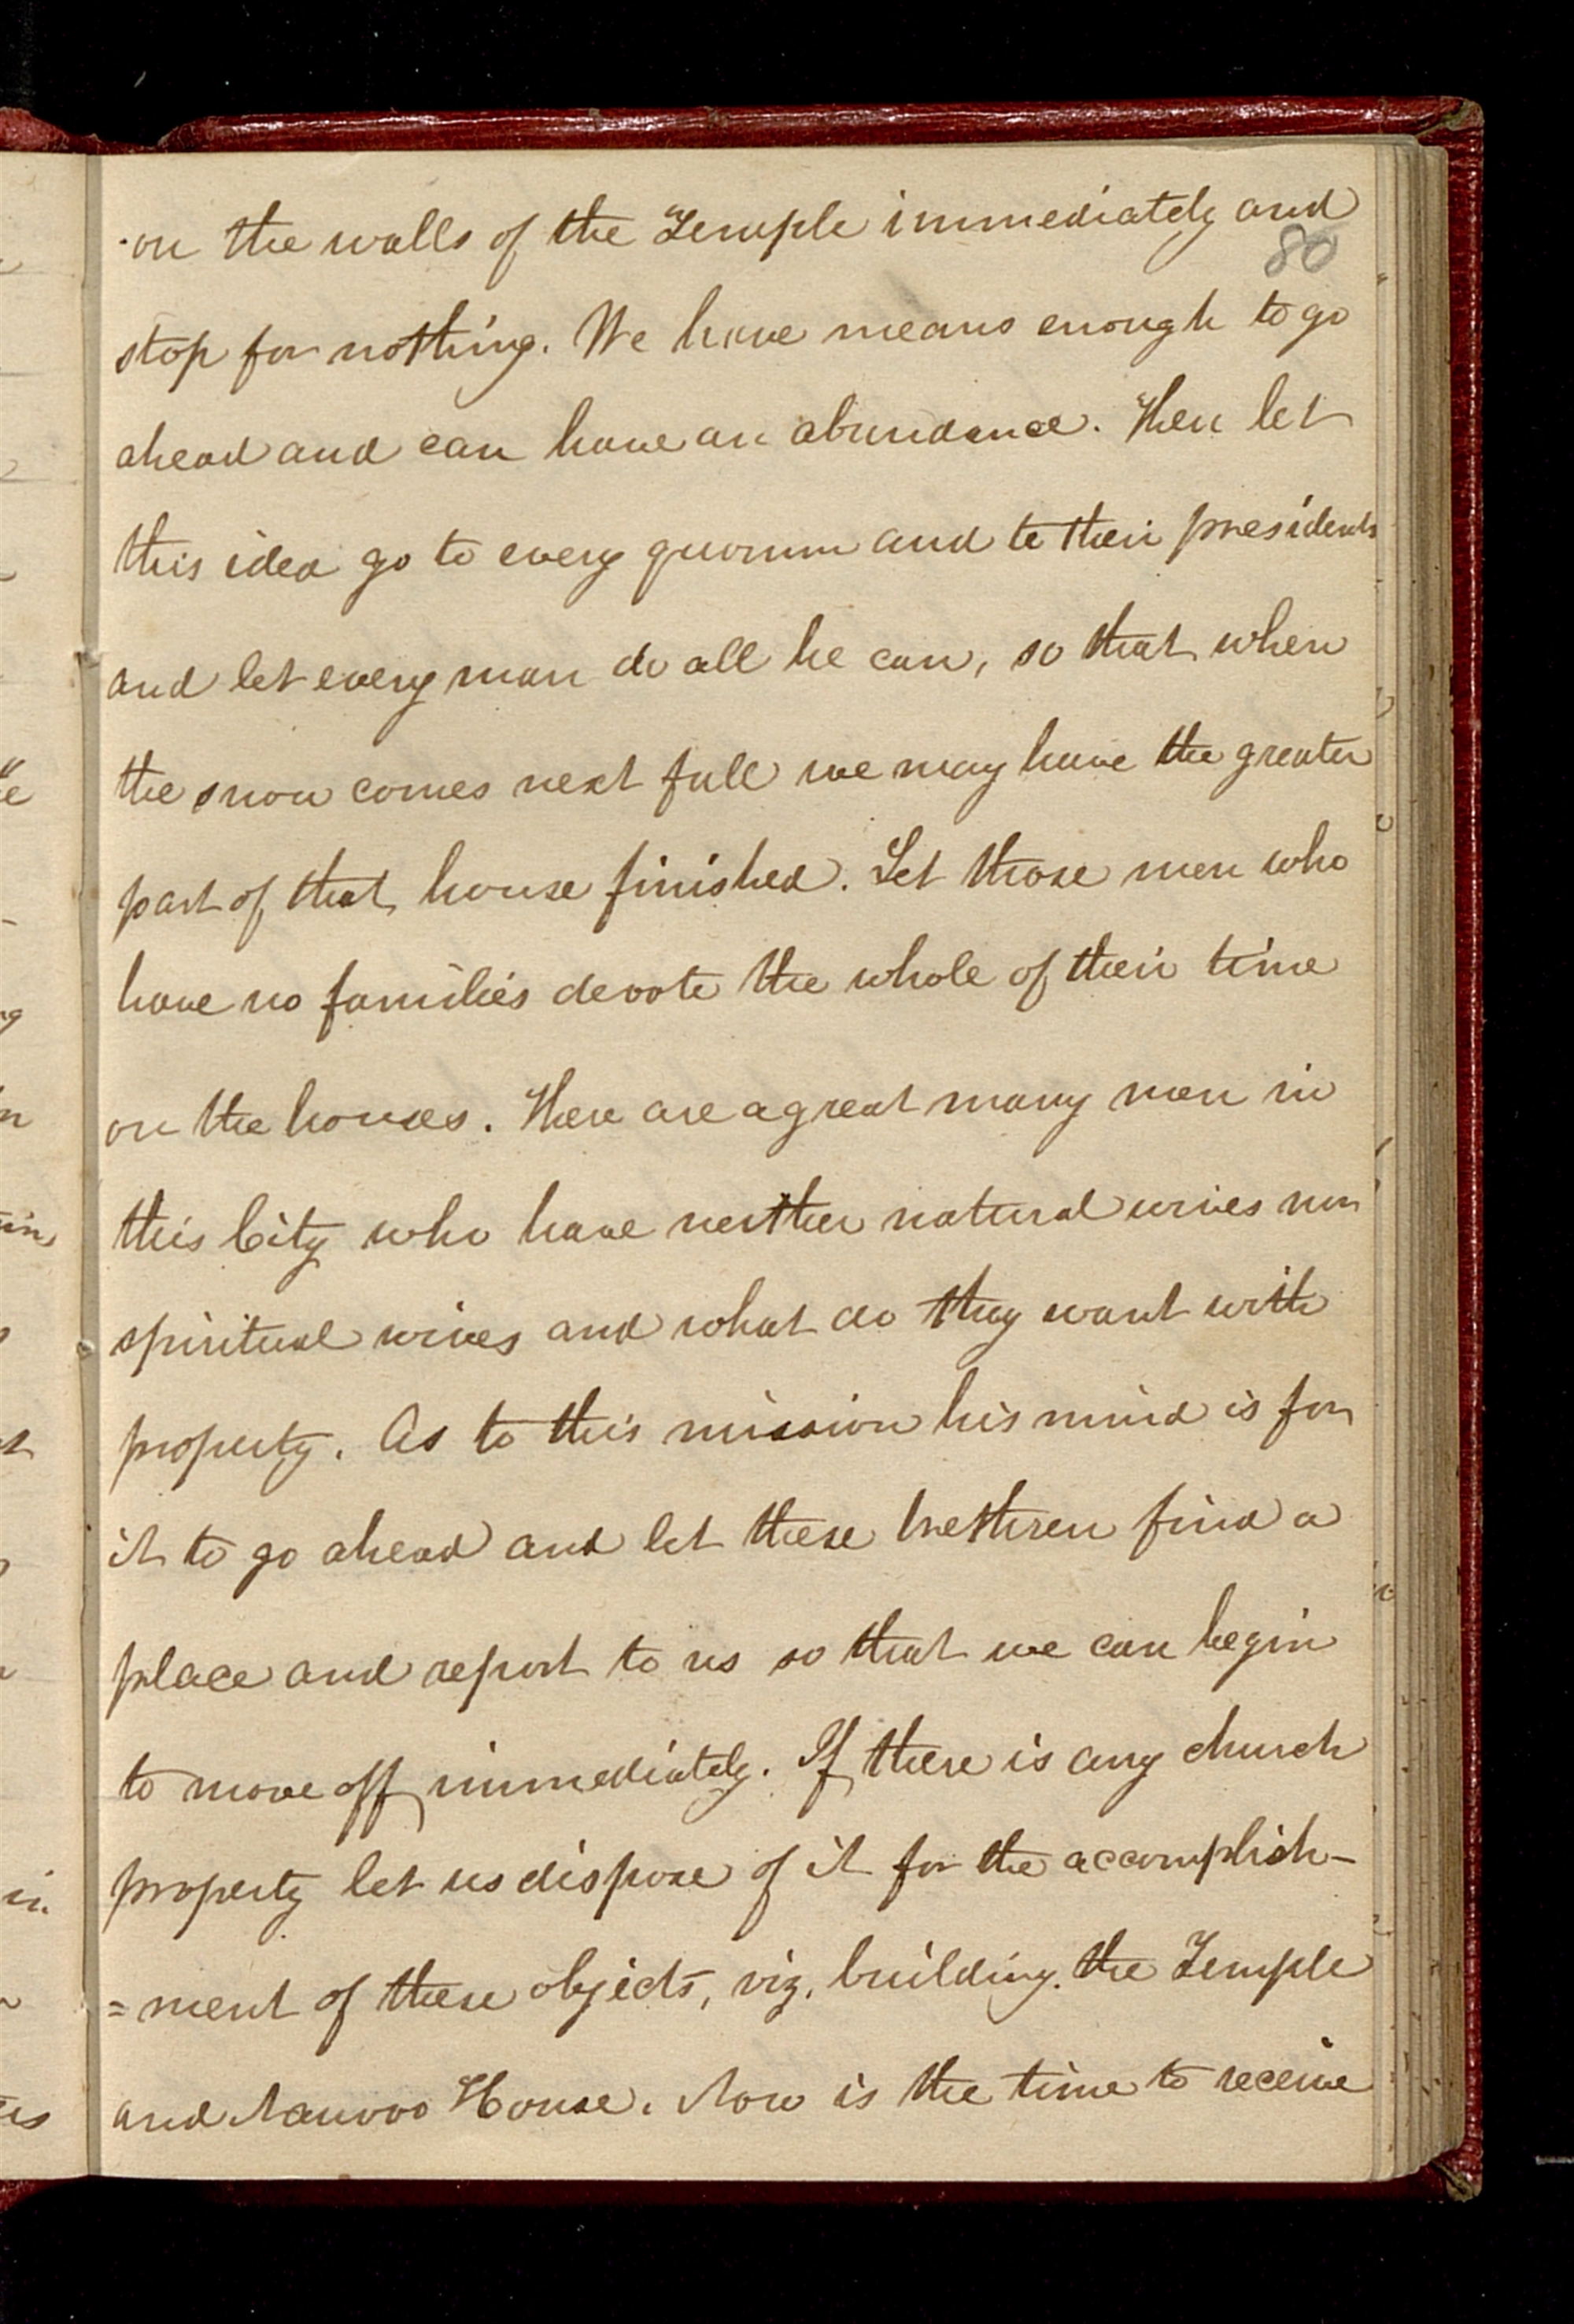 on the walls of the Temple immediately and
80
stop for nothing. We have means enough to go
ahead and can have an abundance. Then let
this idea go to every quorum and to their presidents
and let every man do all he can, so that when
the snow comes next fall we may have the greater
part of that house finished. Let those men who
have no families devote the whole of their time
on the houses. There are a great many men in
this City who have neither natural wives nor
spiritual wives and what do they want with
property. As to this mission his mind is for
it to go ahead and let these brethren find a
place and report to us so that we can begin
to move off immediately. If there is any church
property let us dispose of it for the accomplish-
=ment of these objects, viz. building the Temple
and Nauvoo House. Now is the time to receive